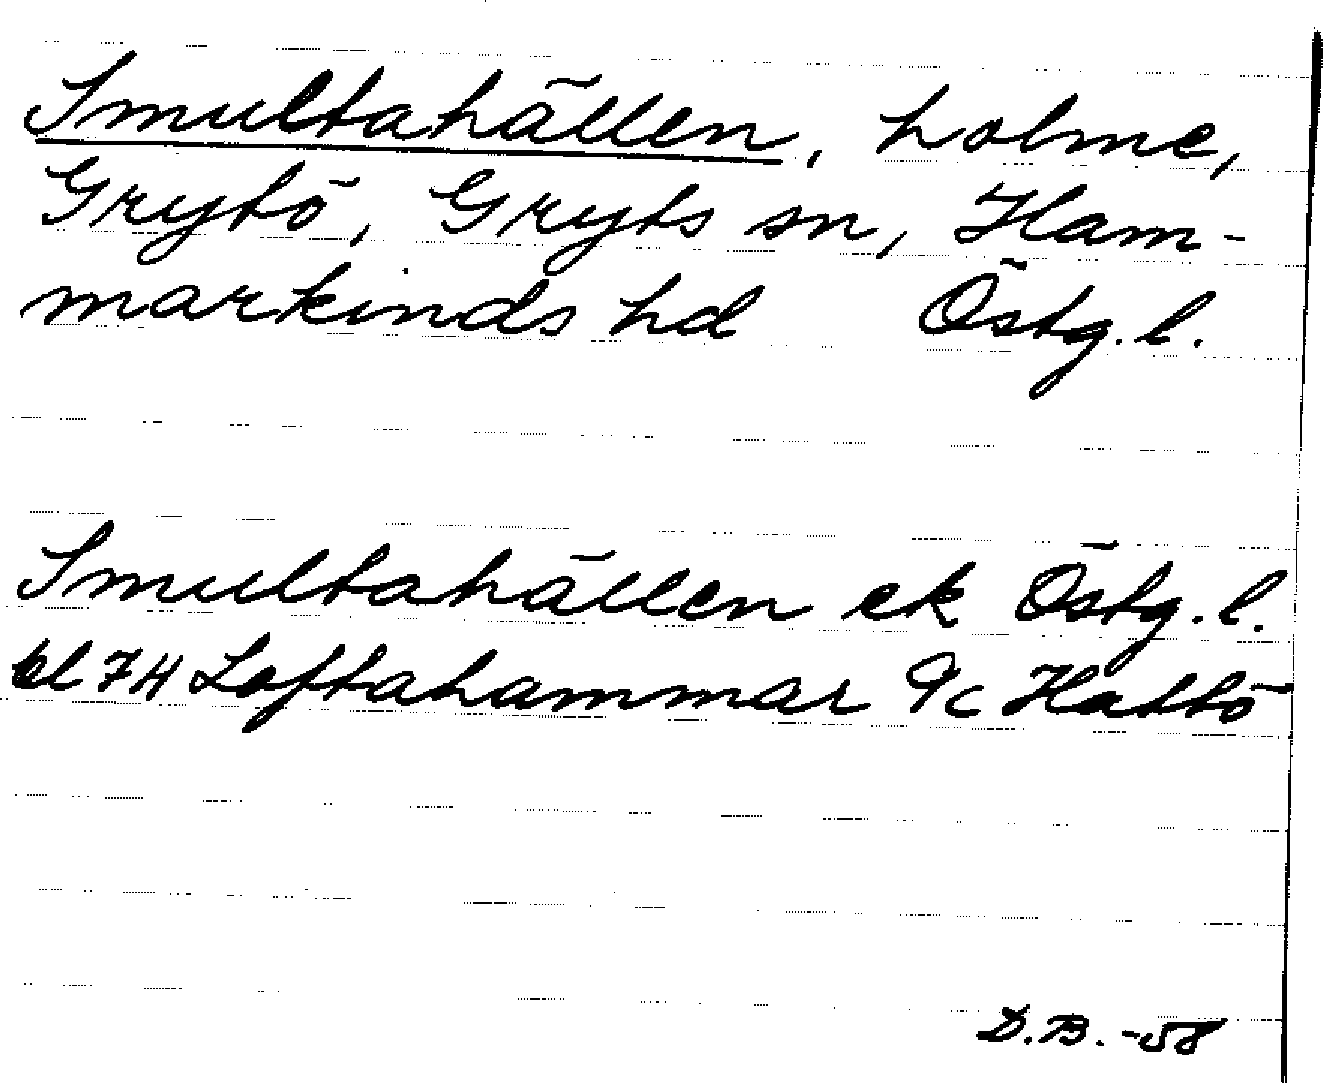 Smultahällen, holme,
Grytö, Gryts sn, Ham-
markinds hd Östg. l.
Smultahällen ek Östg. l.
bl 7H Loftahammar 9c Hattö
D.B. -58